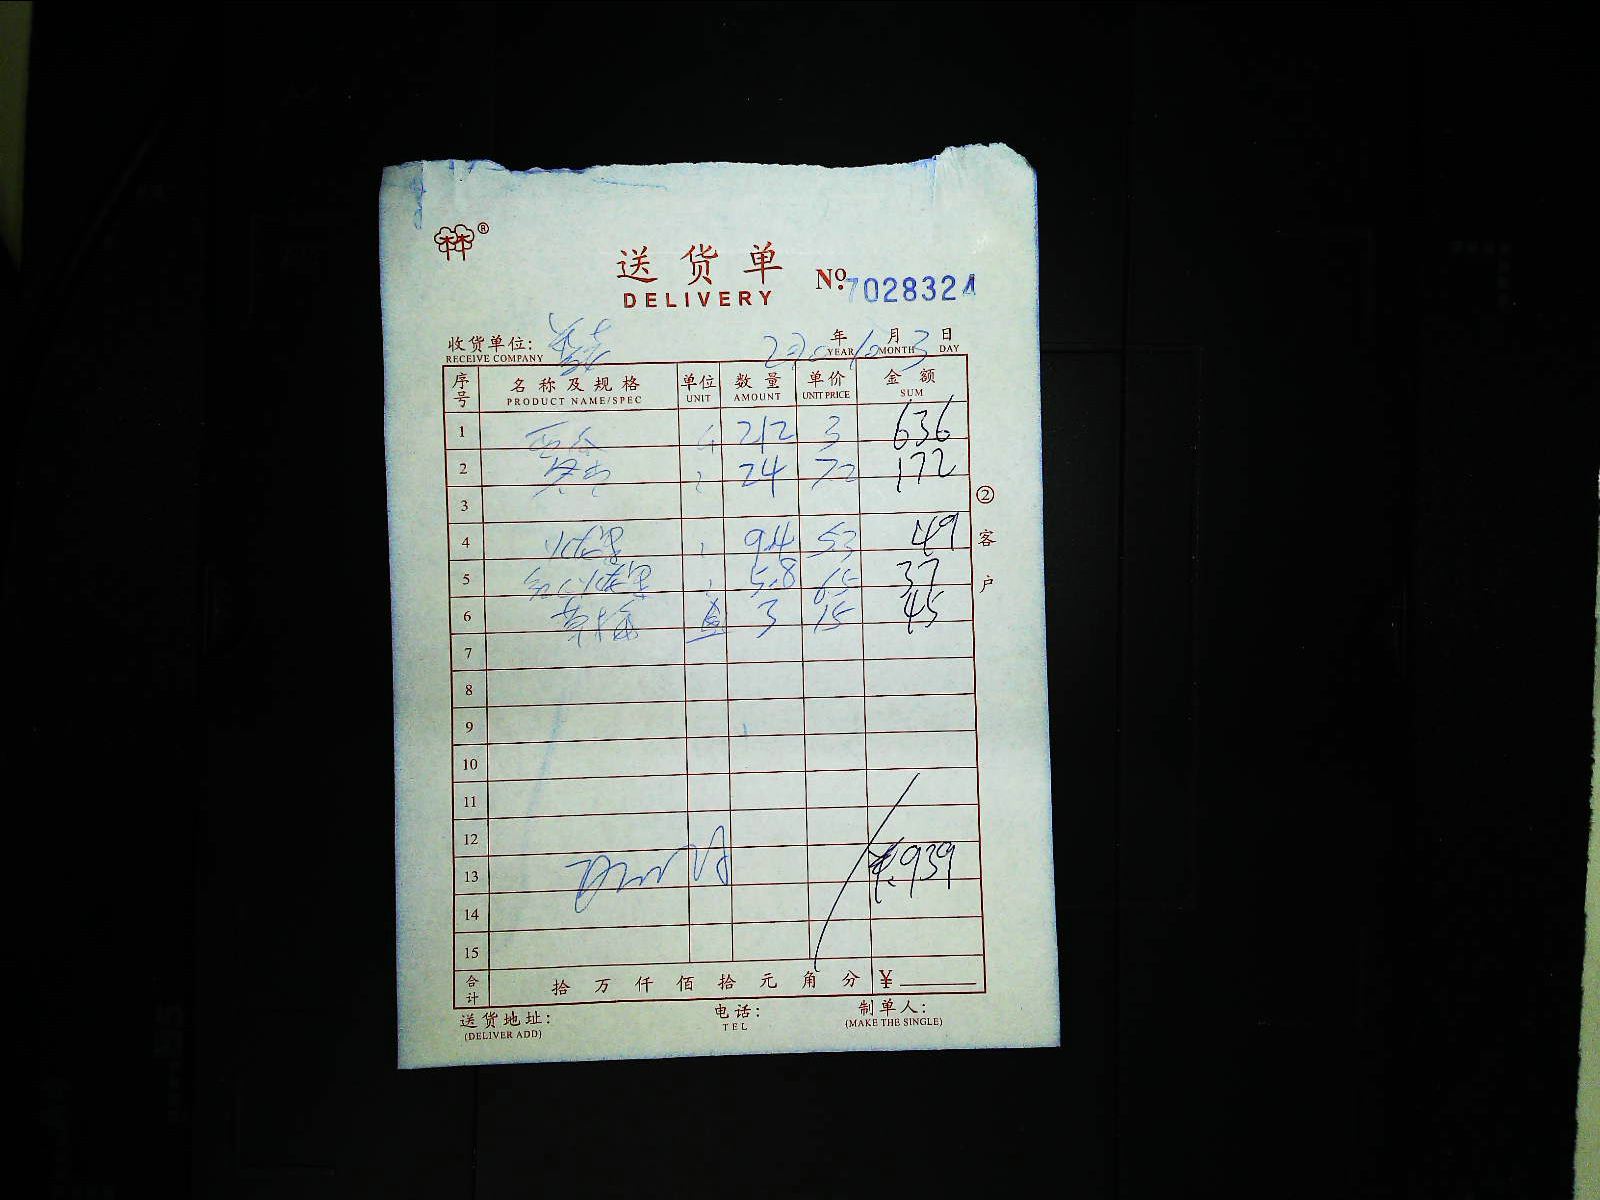 林®
送货单
DELIVERY
Nº:7028324
收货单位: 年 10月3日
RECEIVE COMPANY YEAR MONTH DAY
序号 名称及规格 单位 数量 单价 金额
PRODUCT NAME/SPEC UNIT AMOUNT UNIT PRICE SUM
1 212 3 636
2 24 72 172
3
4 9.4 53 49
5 5.8 6.5 37
6 草梅 盒 3 15 45
7
8
9
10
11
12
13 ¥939
14
15
合计 拾 万 仟 佰 拾 元 角 分 ¥
② 客户
送货地址: 电话: 制单人:
(DELIVER ADD) TEL (MAKE THE SINGLE)